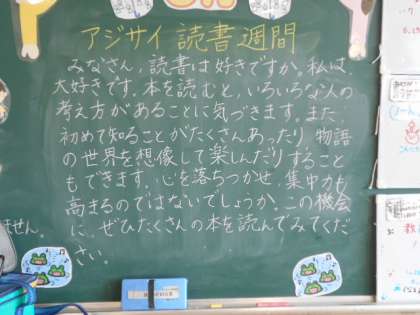 アジサイ読書週間
みなさん、読書は好きですか。私は、
大好きです。本を読むと、いろいろな人の
考え方があることに気づきます。また、
初めて知ることがたくさんあったり、物語
の世界を想像して楽しんだりすること
もできます。心を落ちつかせ、集中力も
高まるのではないでしょうか。この機会
に、ぜひたくさんの本を読んでみてくだ
さい。
ません。